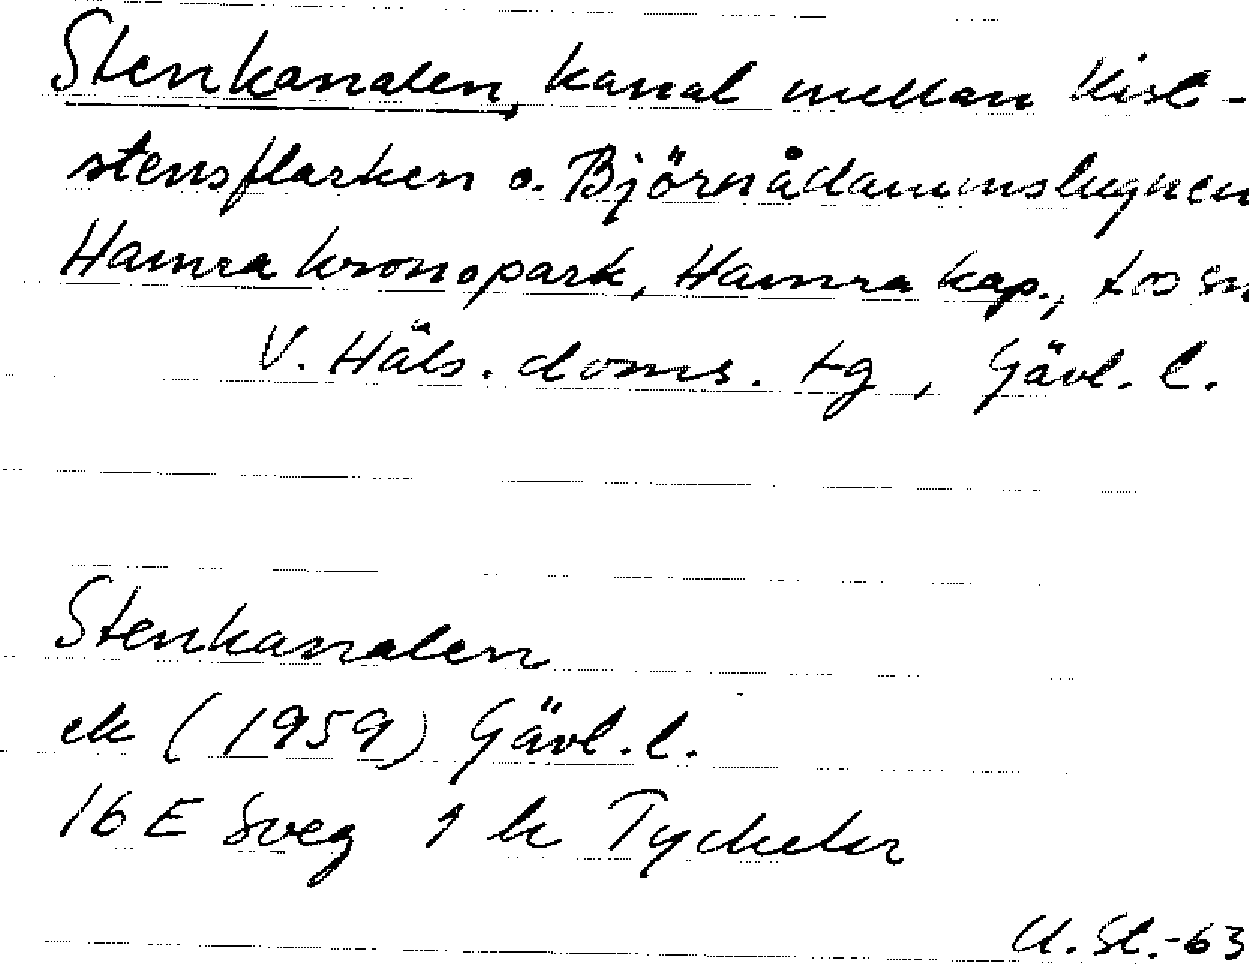 Stenkanalen, kanal mellan Kisl-
stensflarken o. Björnådammslugnen
Hamra kronopark, Hamra kap., Loos sn
V. Häls. doms. tg, Gävl. l.
Stenkanalen
ek (1959) Gävl. l.
16 E Sveg 1 h Tyckeln
U. St.-63